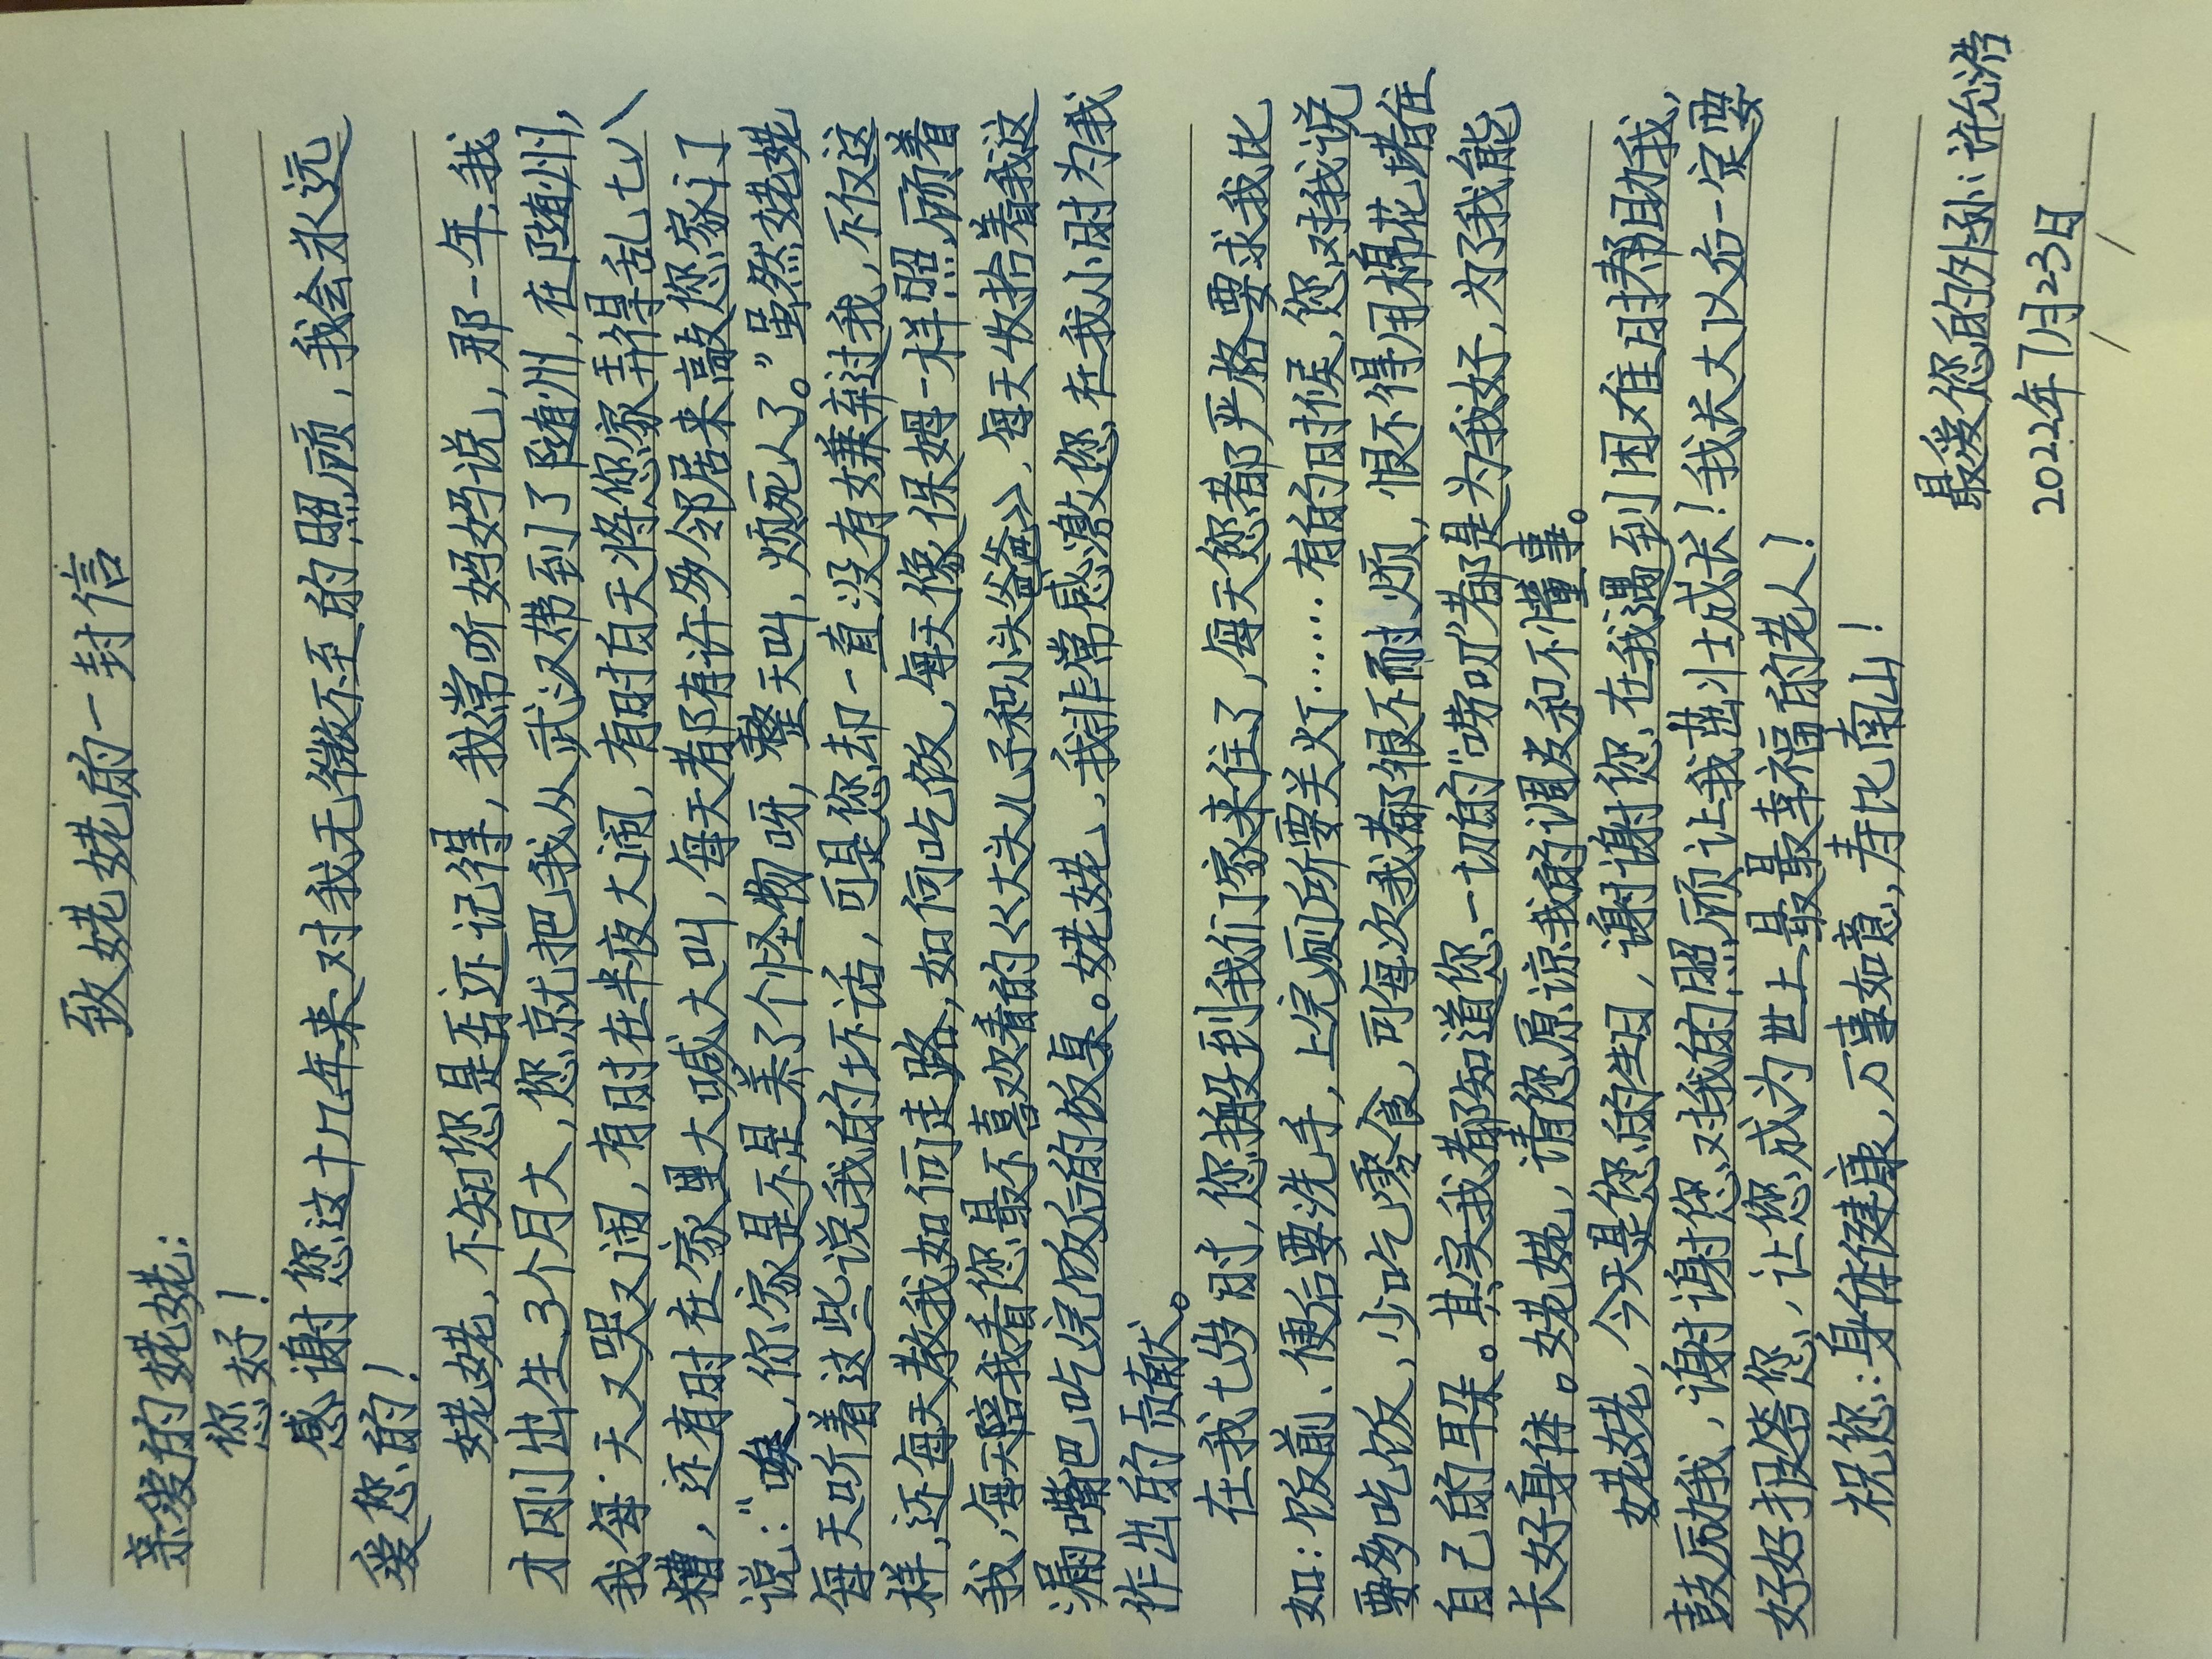 致姥姥的一封信
亲爱的姥姥:
您好!
感谢您这十几年来对我无微不至的照顾,我会永远
爱您的!
姥姥,不知您是否还记得,我常听妈妈说,那一年,我
才刚出生3个月大,您就把我从武汉带到了随州,在随州,
我每天又哭又闹,有时在半夜大闹,有时白天将您家弄得乱七八
糟,还有时在家里大喊大叫,每天都有许多邻居来敲您家门
说:“唉,你家是不是养了个怪物呀,整天叫,烦死人了。”虽然姥姥
每天听着这些说我的坏话,可是您却一直没有嫌弃过我,不仅这
样,还每天教我如何走路,如何吃饭,每天像保姆一样照顾着
我,每天陪我看您最不喜欢看的《大头儿子和小头爸爸》,每天收拾着我这
漏嘴巴吃完饭后的饭桌。姥姥,我非常感激您在我小时为我
作出的贡献。
在我七岁时,您搬到我们家来住了,每天您都严格要求我比
如:饭前、便后要洗手,上完厕所要关灯……有的时候,您对我说
要多吃饭,少吃零食,可每次我都很不耐烦,恨不得用棉花堵住
自己的耳朵。其实我都知道您一切的“唠叨”都是为我好,为了我能
长好身体。姥姥,请您原谅我的调皮和不懂事。
姥姥,今天是您的生日,谢谢您在我遇到困难时帮助我,
鼓励我,谢谢您对我的照顾让我茁壮成长!我长大以后一定要
好好报答您,让您成为世上最最幸福的老人!
祝您:身体健康,万事如意,寿比南山!
最爱您的外孙:许浩
2022年7月23日